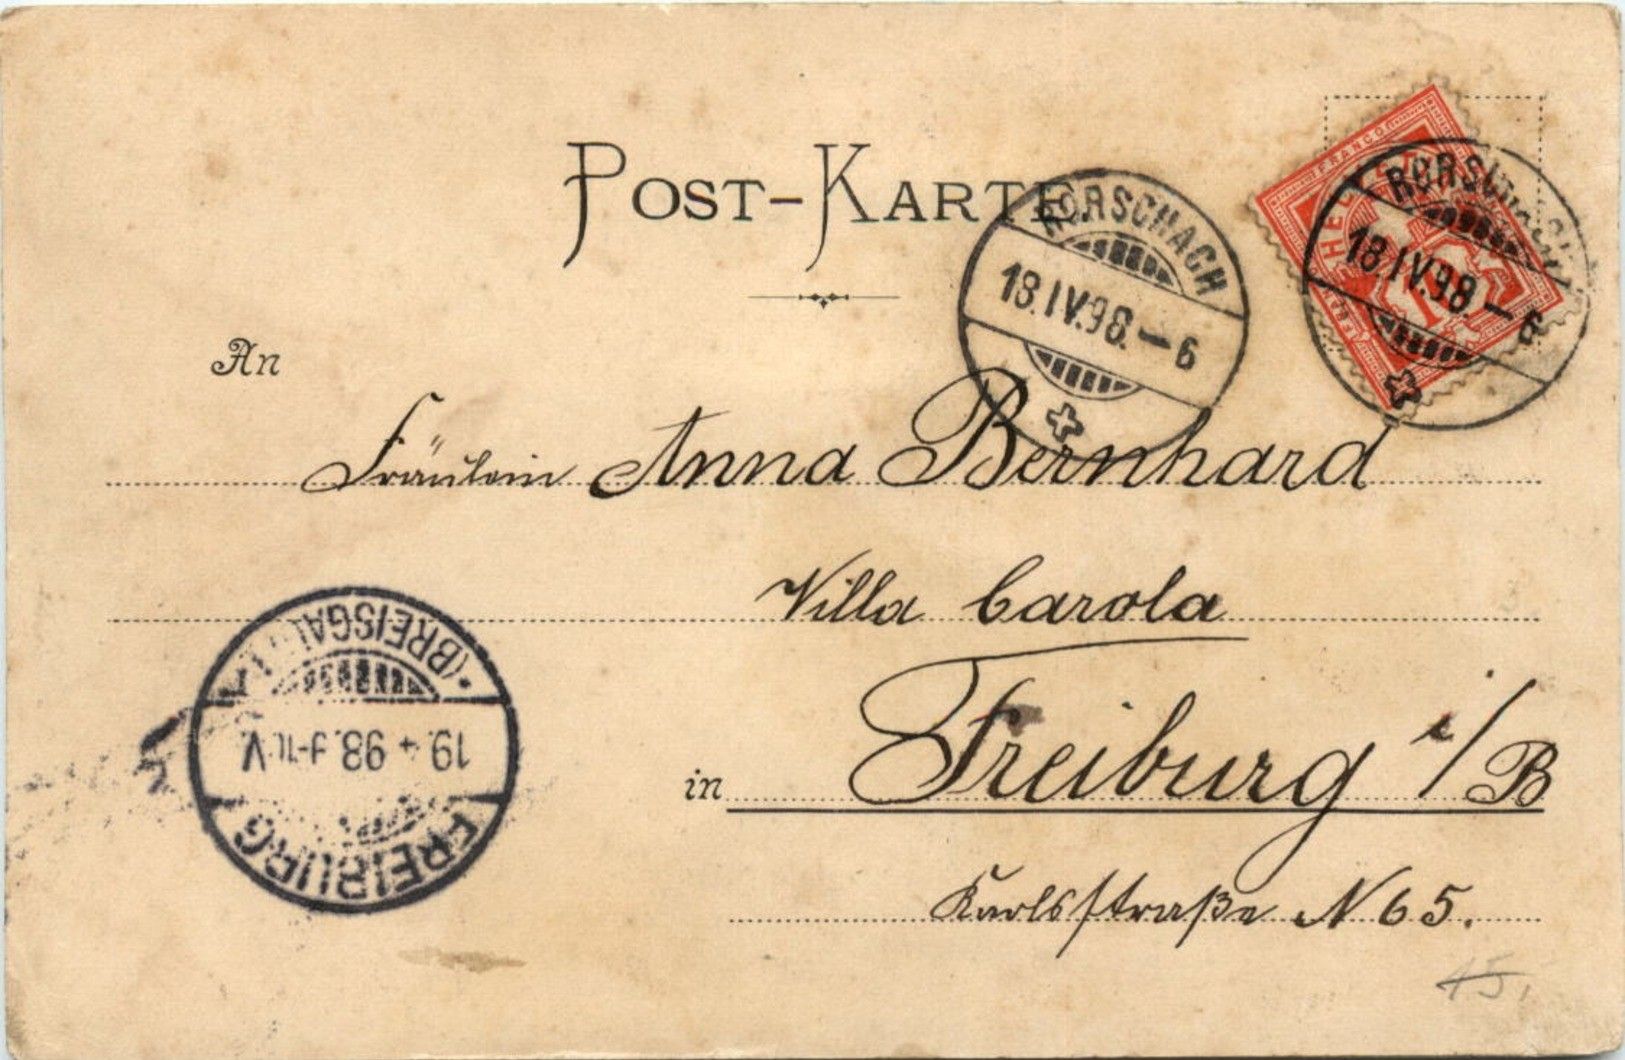 POST-KARTE.
FRANCO
RORSCHACH
18.IV.98.–6
RORSCHACH
18.IV.98.–6
An
Fräulein Anna Bernhard
Villa Carola
in Freiburg i/B
Karlsstraße N 65.
FREIBURG
19. 4 98. 9-10.V.
(BREISGAU)
45,